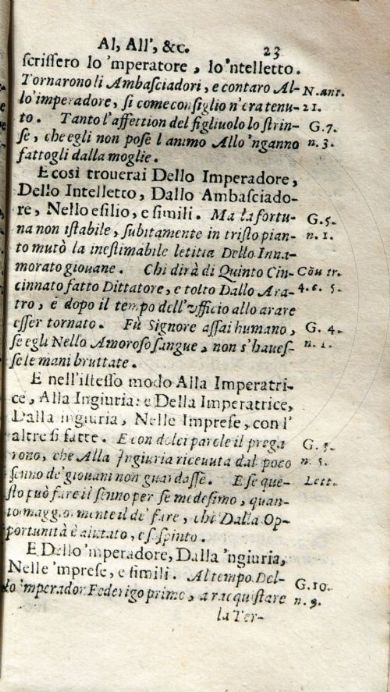 Al, All', &c. 23
scrissero lo 'mperatore, lo 'ntelletto.
Tornarono li Ambasciadori, e contaro Al- N. ant.
lo 'mperadore, si come consiglio n'era tenu- 21.
to. Tanto l'affettion del figliuolo lo strin- G. 7.
se, che egli non pose l'animo Allo 'nganno n. 3.
fattogli dalla moglie.
E così trouerai Dello Imperadore,
Dello Intelletto, Dallo Ambasciado-
re, Nello esilio, e simili. Ma la fortu- G. 5.
na non istabile, subitamente in tristo pian- n. 1.
to mutò la inestimabile letitia Dello Inna-
morato giouane. Chi dirà di Quinto Cin- Cōu tr.
cinnato fatto Dittatore, e tolto Dallo Ara- 4. c. 5.
tro, e dopo il tempo dell'vfficio allo arare
esser tornato. Fù Signore assai humano, G. 4.
se egli Nello Amoroso sangue, non s'haues- n. 1.
se le mani bruttate.
E nell'istesso modo Alla Imperatri-
ce, Alla Ingiuria: e Della Imperatrice,
Dalla ingiuria, Nelle Imprese, con l'
altre sì fatte. E con dolci parole il prega
rono, che Alla Ingiuria riceuuta dal poco n. 5.
senno de' giouani non guardasse. E se que- Lett.
sto può fare il senno per se medesimo, quan-
to maggiormente il de' fare, chi Dalla Op-
portunità è aiutato, e sospinto.
E Dello 'mperadore, Dalla 'ngiuria,
Nelle 'mprese, e simili. Al tempo Del-
lo 'mperador Federigo primo, a racquistare G. 10. n. 9.
la Ter-